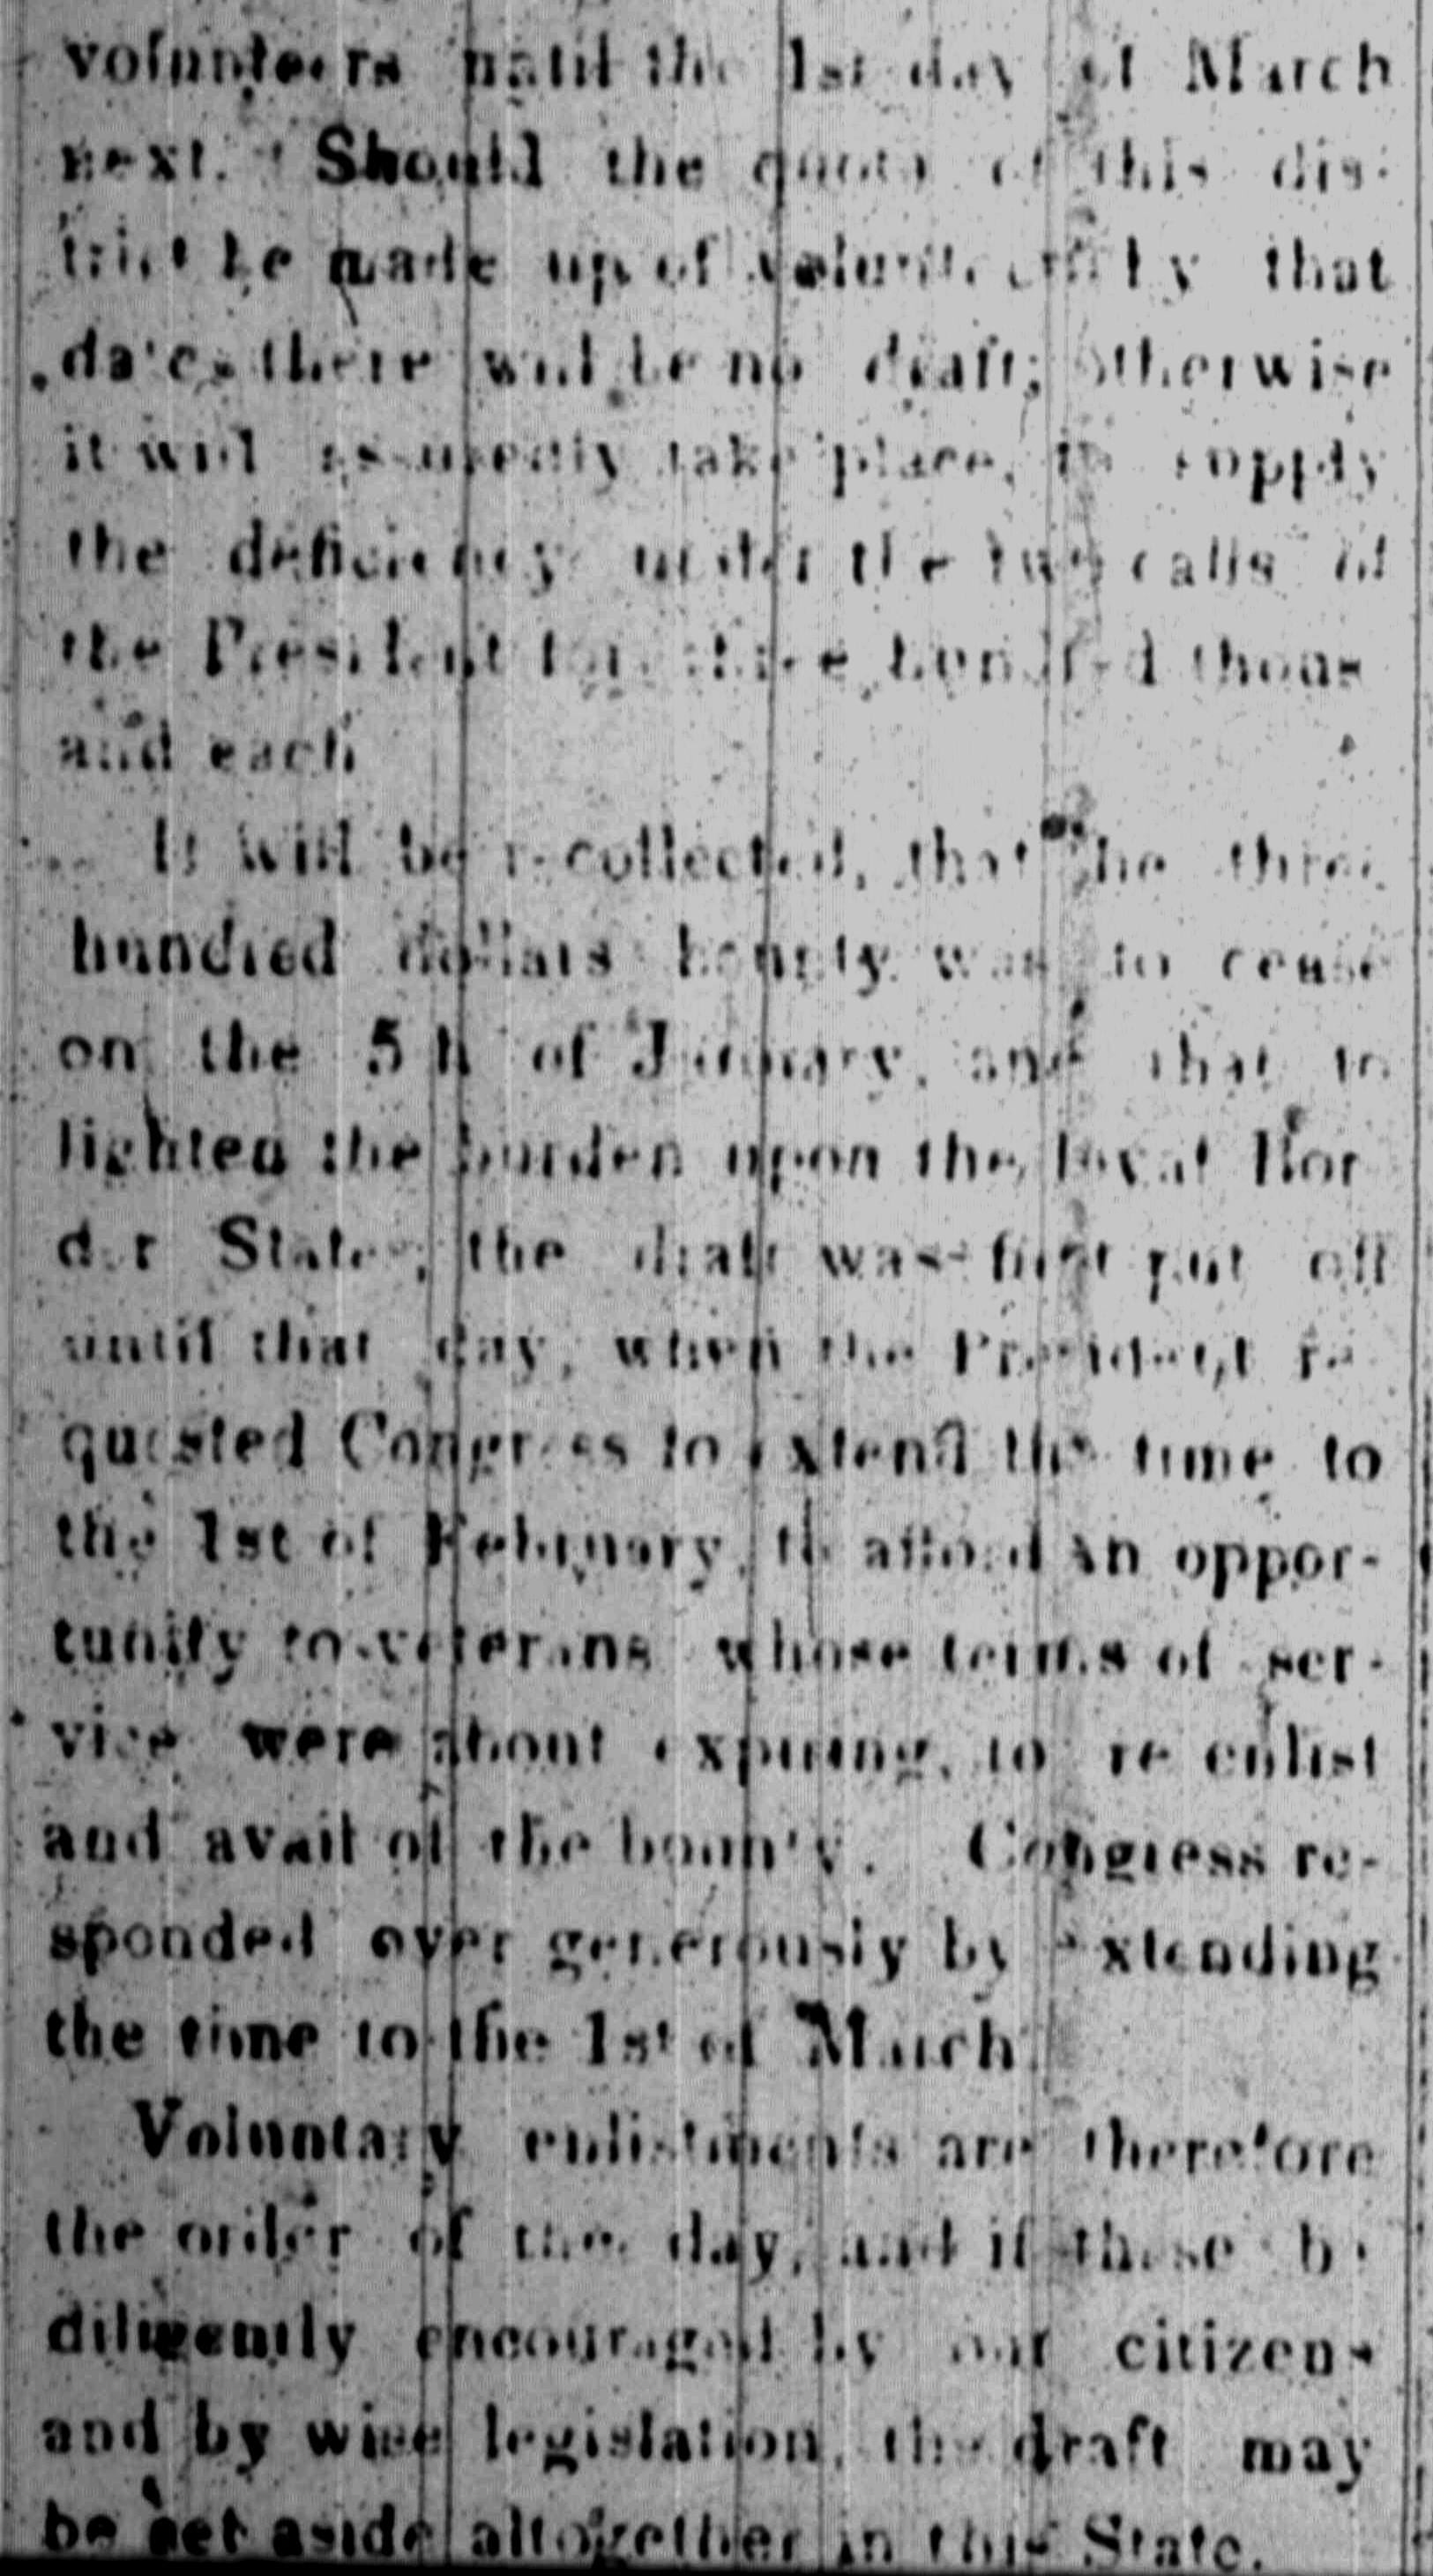 volunteers until the 1st day of March
next. Should the quota of this dis-
trict be made up of volunteers by that
date, there will be no draft; otherwise
it will assuredly take place, to supply
the deficiency under the two calls of
the President for three hundred thous
and each
It will be recollected, that the three
hundred dollars bounty was to cease
on the 5th of January, and that to
lighten the burden upon the loyal Bor
der States, the draft was first put off
until that day, when the President re
quested Congress to extend the time to
the 1st of February, to afford an oppor-
tunity to veterans whose terms of ser-
vice were about expiring, to re enlist
and avail of the bounty. Congress re-
sponded over generously by extending
the time to the 1st of March
Voluntary enlistments are therefore
the order of the day, and if these be
diligently encouraged by our citizens
and by wise legislation, the draft may
be set aside altogether in this State.